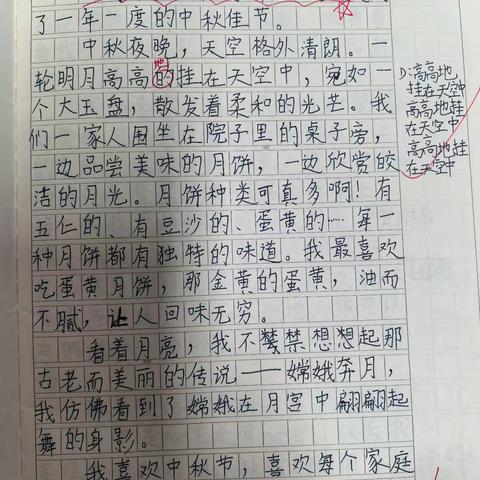 了一年一度的中秋佳节。
中秋夜晚，天空格外清朗。一
轮明月高高的挂在天空中，宛如一
地
个大玉盘，散发着柔和的光芒。我
们一家人围坐在院子里的桌子旁，
一边品尝美味的月饼，一边欣赏皎
洁的月光。月饼种类可真多啊！有
五仁的、有豆沙的、蛋黄的……每一
种月饼都有独特的味道。我最喜欢
吃蛋黄月饼，那金黄的蛋黄，油而
不腻，让人回味无穷。
看着月亮，我不禁想想起那
古老而美丽的传说——嫦娥奔月，
我仿佛看到了嫦娥在月宫中翩翩起
舞的身影。
我喜欢中秋节，喜欢每个家庭
D:高高地
挂在天空中
高高地挂
在天空中
高高地挂
在天空中